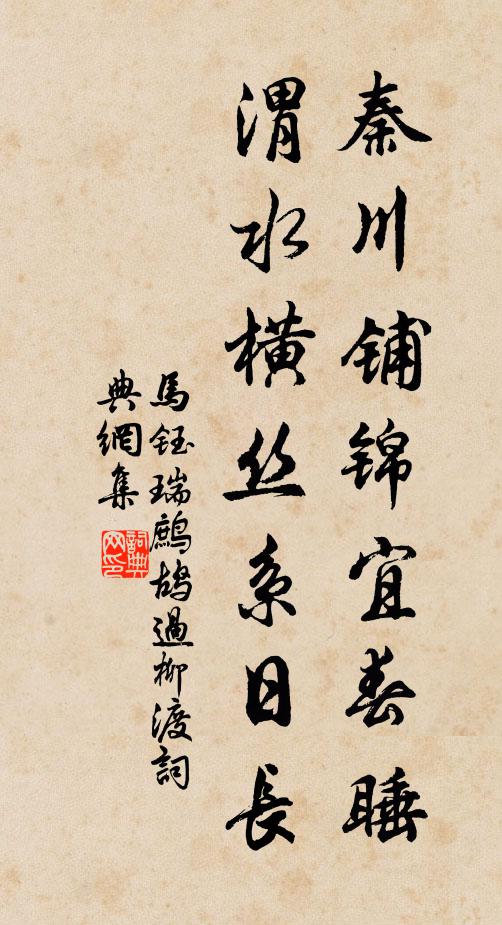 秦川铺锦宜春睡
渭水横丝系日長
馬钰瑞鷓鸪過柳渡詞
典網集
詞典网印